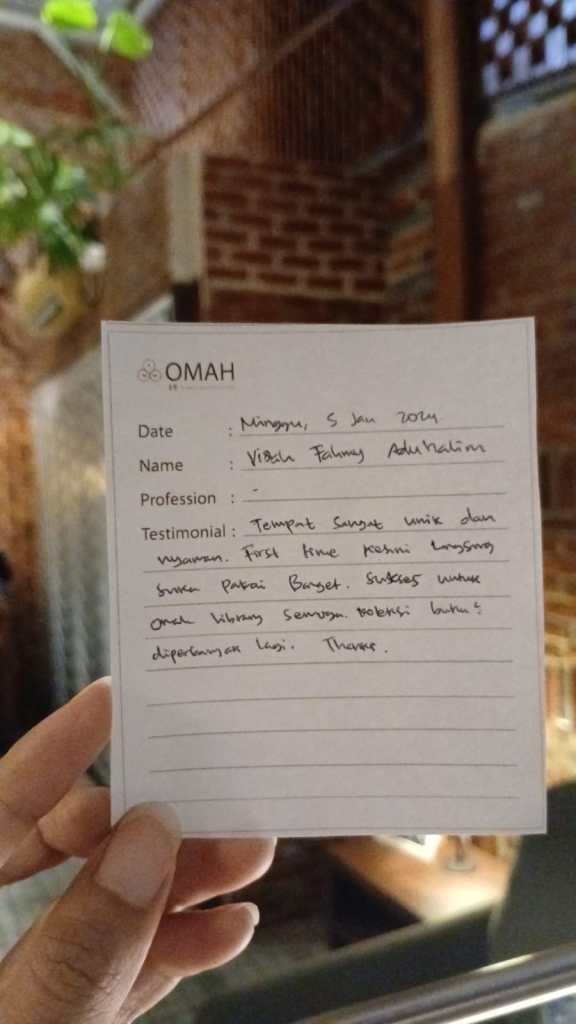 OMAH
Date : Minggu, 5 Jan 2024
Name : Fahmy
Profession : -
Testimonial : Tempat sangat unik dan
nyaman. First time kesini langsung
suka pakai Banget. Sukses untuk
omah library semoga koleksi buku²
diperbanyak lagi. Thanks.